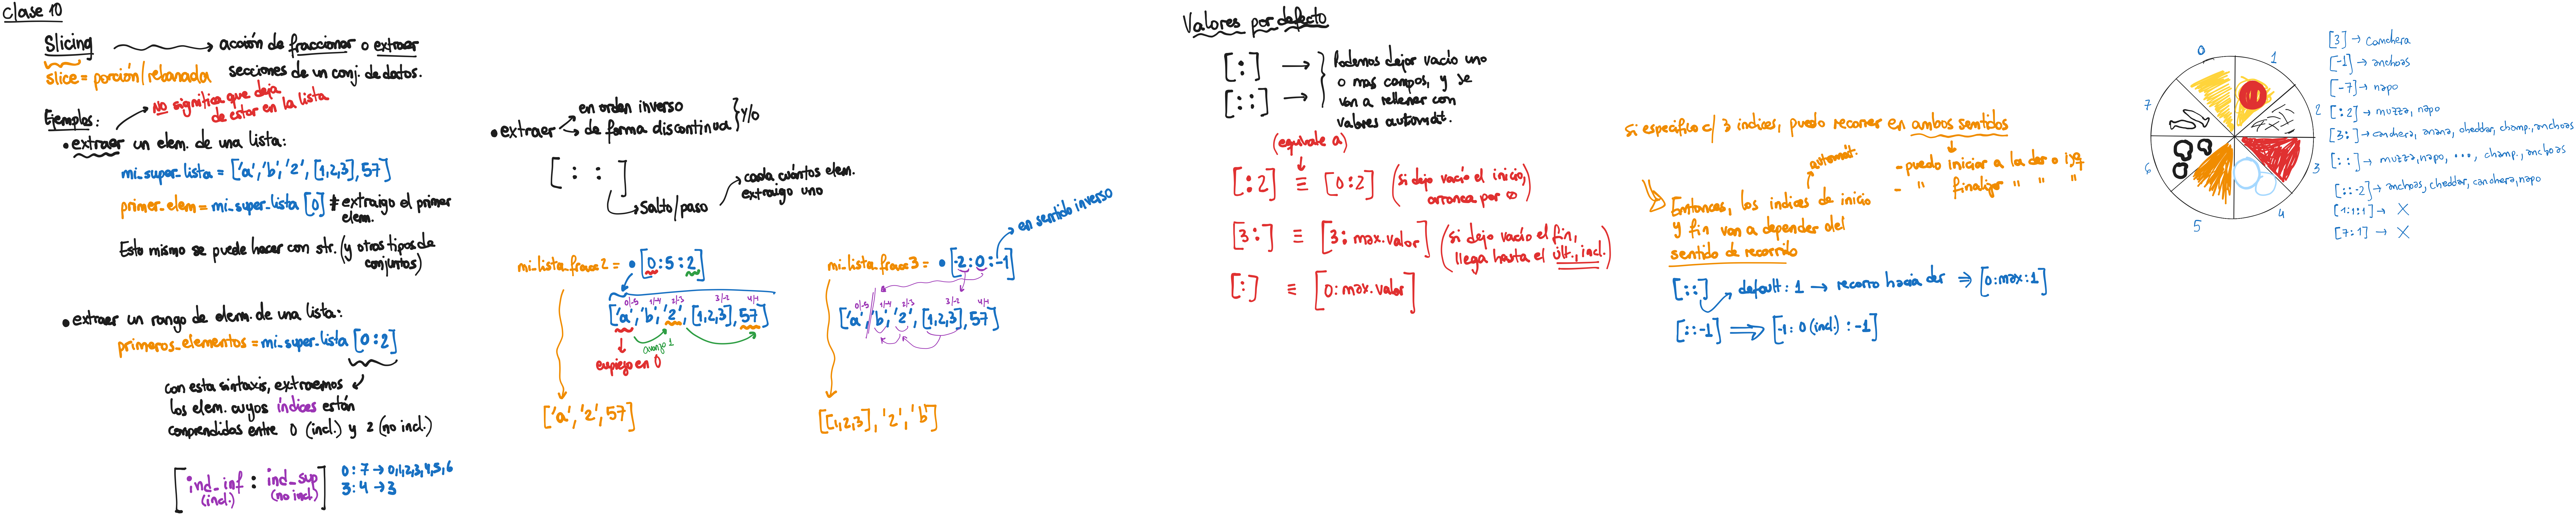 Clase 10
Slicing → acción de fraccionar o extraer
secciones de un conj. de datos.
slice = porción/rebanada
Ejemplos:
NO significa que deja
de estar en la lista
• extraer un elem. de una lista:
mi_super_lista = ['a', 'b', '2', [1,2,3], 57]
primer_elem = mi_super_lista [0] # extraigo el primer
elem.
Esto mismo se puede hacer con str. (y otros tipos de
conjuntos)
• extraer un rango de elem. de una lista:
primeros_elementos = mi_super_lista [0:2]
con esta sintaxis, extraemos
los elem. cuyos índices están
comprendidos entre 0 (incl.) y 2 (no incl.)
[ind_inf : ind_sup]
(incl.) (no incl.)
0:7 → 0,1,2,3,4,5,6
3:4 → 3
• extraer
en orden inverso
de forma discontinua
y/o
[ : : ]
Salto/paso
cada cuántos elem.
extraigo uno
mi_lista_fraxx2 = • [0:5:2]
0/-5 1/-4 2/-3 3/-2 4/-1
['a', 'b', '2', [1,2,3], 57]
avanzo 1
empiezo en 0
['a', '2', 57]
en sentido inverso
mi_lista_fraxx3 = • [-2:0:-1]
0/-5 1/-4 2/-3 3/-2 4/-1
['a', 'b', '2', [1,2,3], 57]
[[1,2,3], '2', 'b']
Valores por defecto
[:] →
[::] →
Podemos dejar vacío uno
o mas campos, y se
van a rellenar con
valores automát.
(equivale a)
[:2] ≡ [0:2] (si dejo vacío el inicio,
arranca por 0)
[3:] ≡ [3: max.valor] (si dejo vacío el fin,
llega hasta el últ., incl.)
[:] ≡ [0: max.valor]
Si especifico c/ 3 indices, puedo recorrer en ambos sentidos
automát.
- puedo iniciar a la der o izq
- " finalizar " " "
Entonces, los indices de inicio
y fin van a depender del
sentido de recorrido
[::] default: 1 → recorro hacia der ⇒ [0:max:1]
[::-1] ⇒ [-1: 0 (incl.) : -1]
0
1
2
3
4
5
6
7
[3] → canchera
[-1] → anchoas
[-7] → napo
[:2] → muzza, napo
[3:] → canchera, anana, cheddar, champ., anchoas
[::] → muzza, napo, ..., champ., anchoas
[::-2] → anchoas, cheddar, canchera, napo
[1:1:1] → X
[7:1] → X